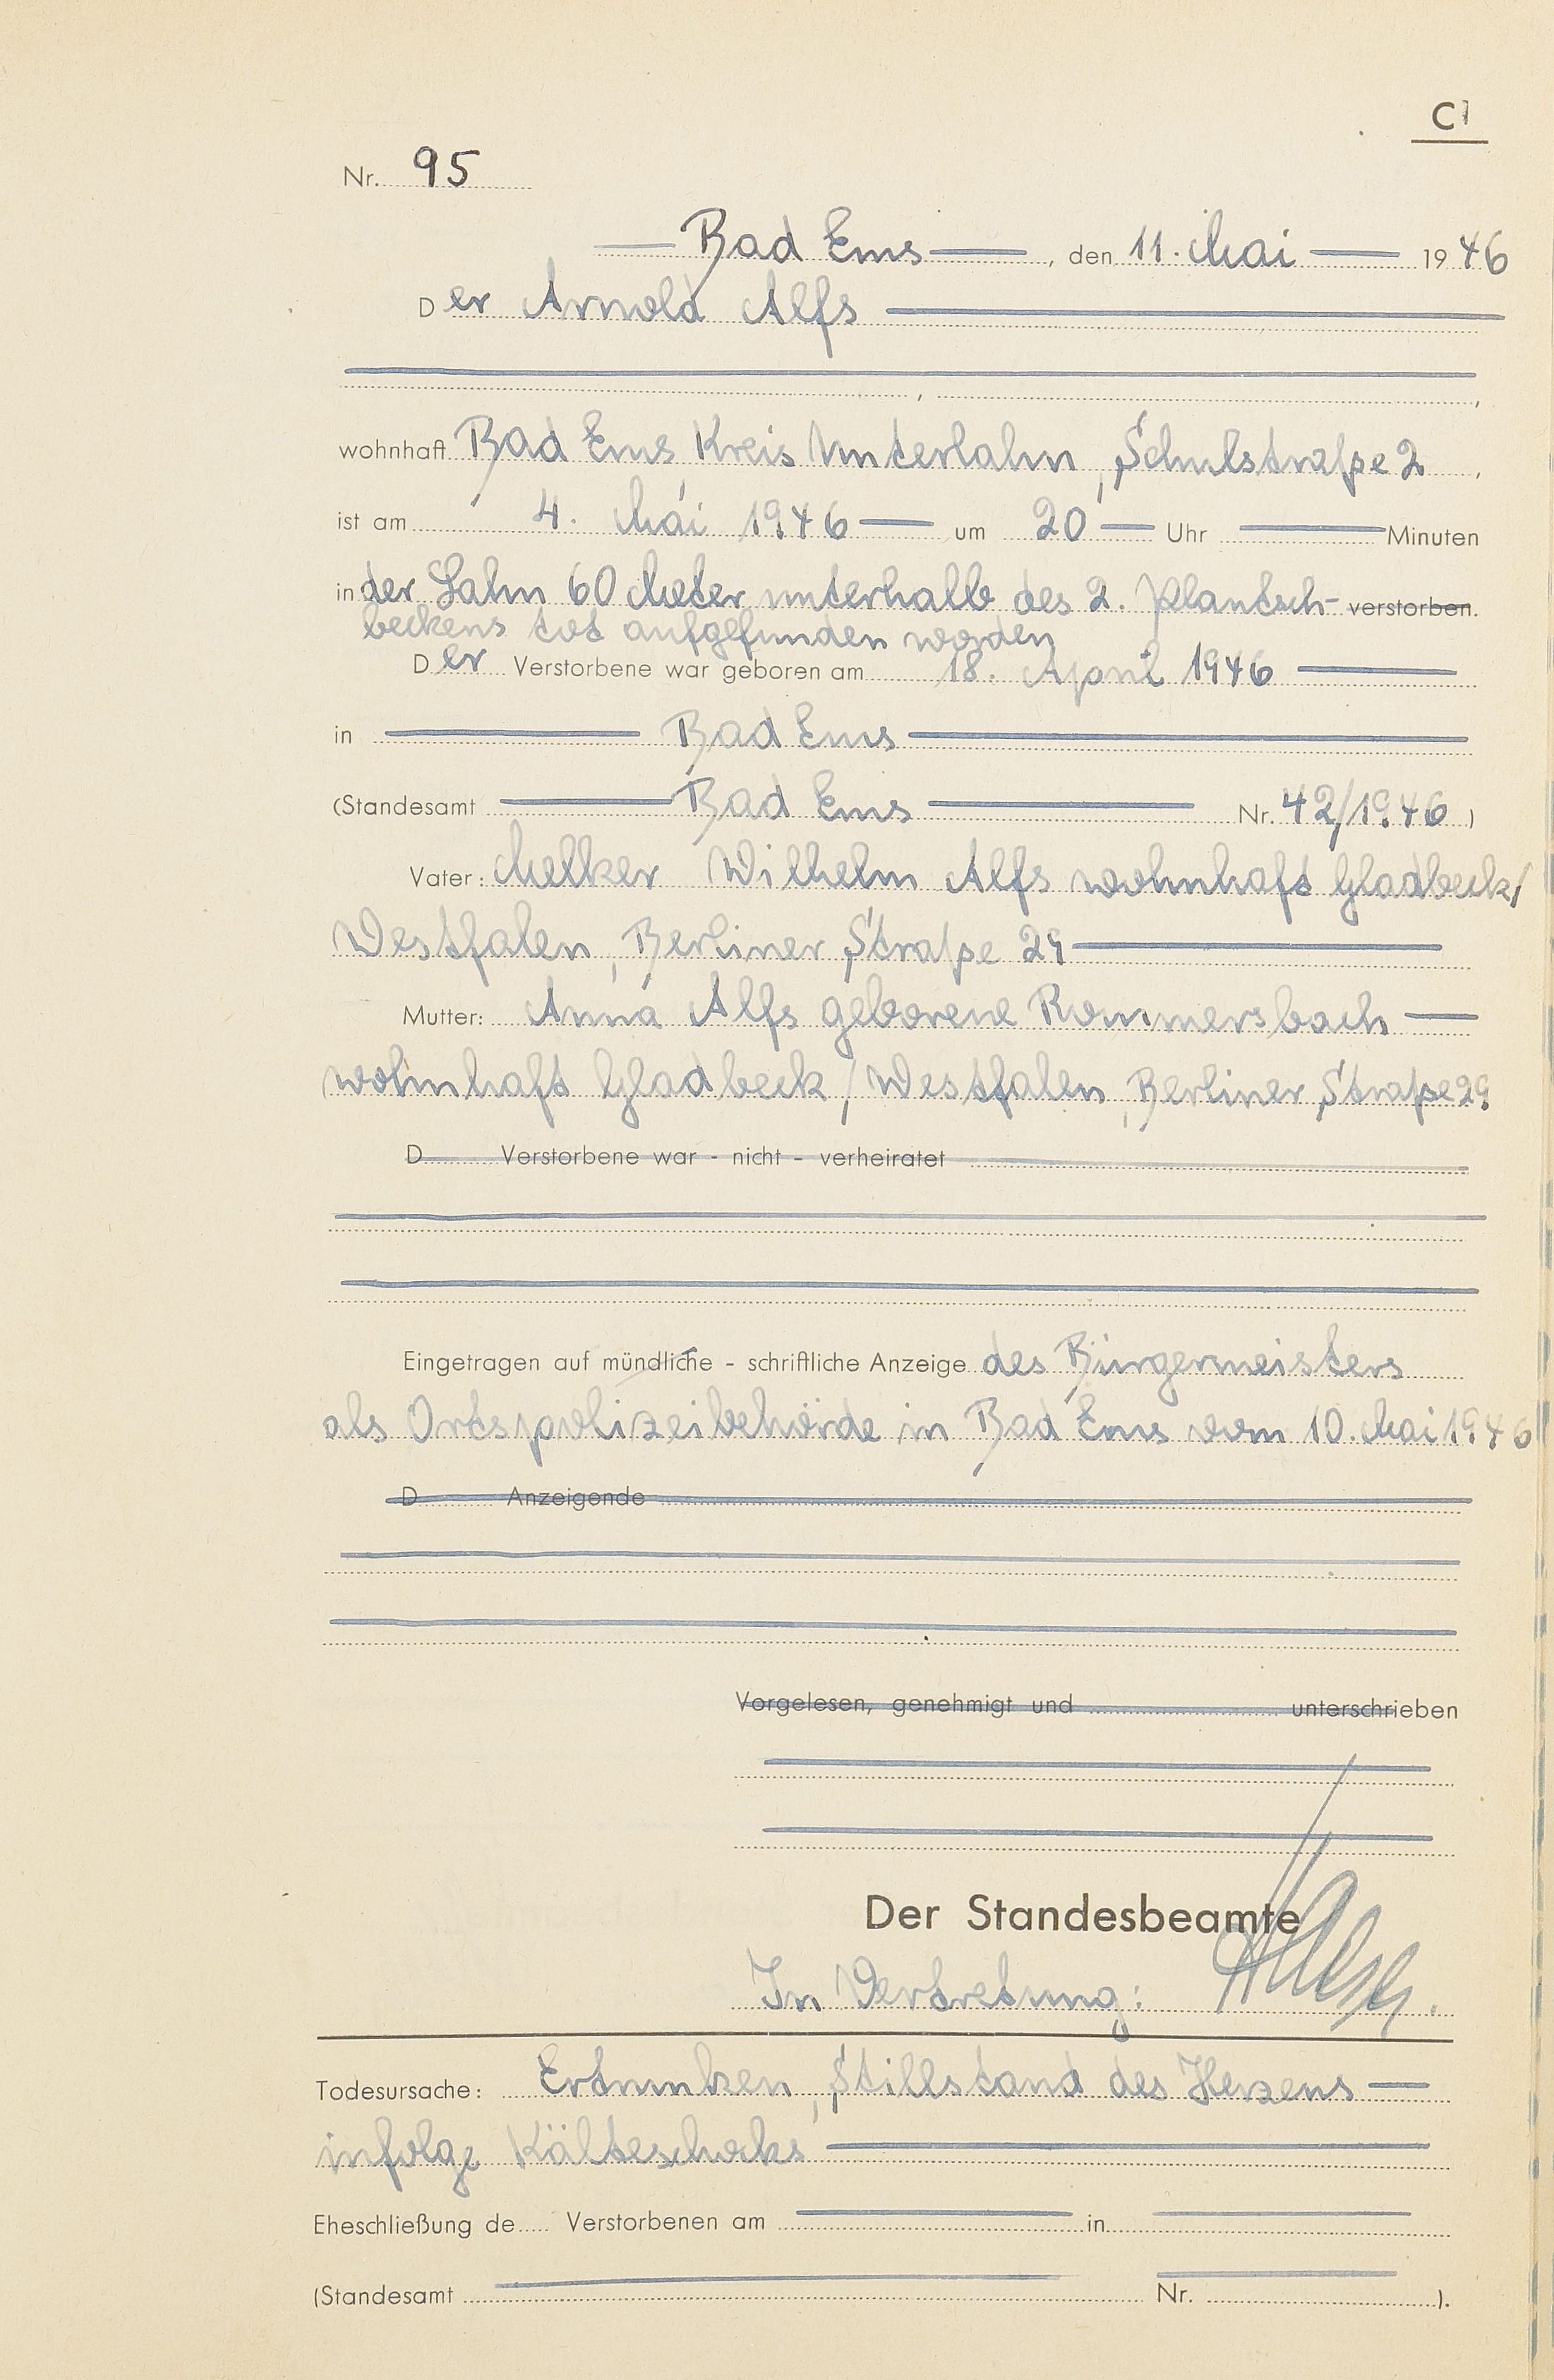 C1
Nr. 95
Bad Ems, den 11. Mai 1946
Der Arnold Alfs
,
wohnhaft Bad Ems, Kreis Unterlahn, Schulstraße 2,
ist am 4. Mai 1946 um 20 Uhr Minuten
in der Lahn 60 Meter unterhalb des 2. Plantsch- verstorben.
beckens tot aufgefunden worden
Der Verstorbene war geboren am 18. April 1946
in Bad Ems
(Standesamt Bad Ems Nr. 42/1946)
Vater: Melker Wilhelm Alfs wohnhaft Gladbeck/
Westfalen, Berliner Straße 29
Mutter: Anna Alfs geborene Rommersbach
wohnhaft Gladbeck/Westfalen, Berliner Straße 29
D Verstorbene war - nicht - verheiratet
Eingetragen auf mündliche - schriftliche Anzeige des Bürgermeisters
als Ortspolizeibehörde in Bad Ems vom 10. Mai 1946
D Anzeigende
Vorgelesen, genehmigt und unterschrieben
Der Standesbeamte
In Vertretung:
Todesursache: Ertrunken, Stillstand des Herzens
infolge Kälteschocks
Eheschließung de Verstorbenen am in
(Standesamt Nr. ).